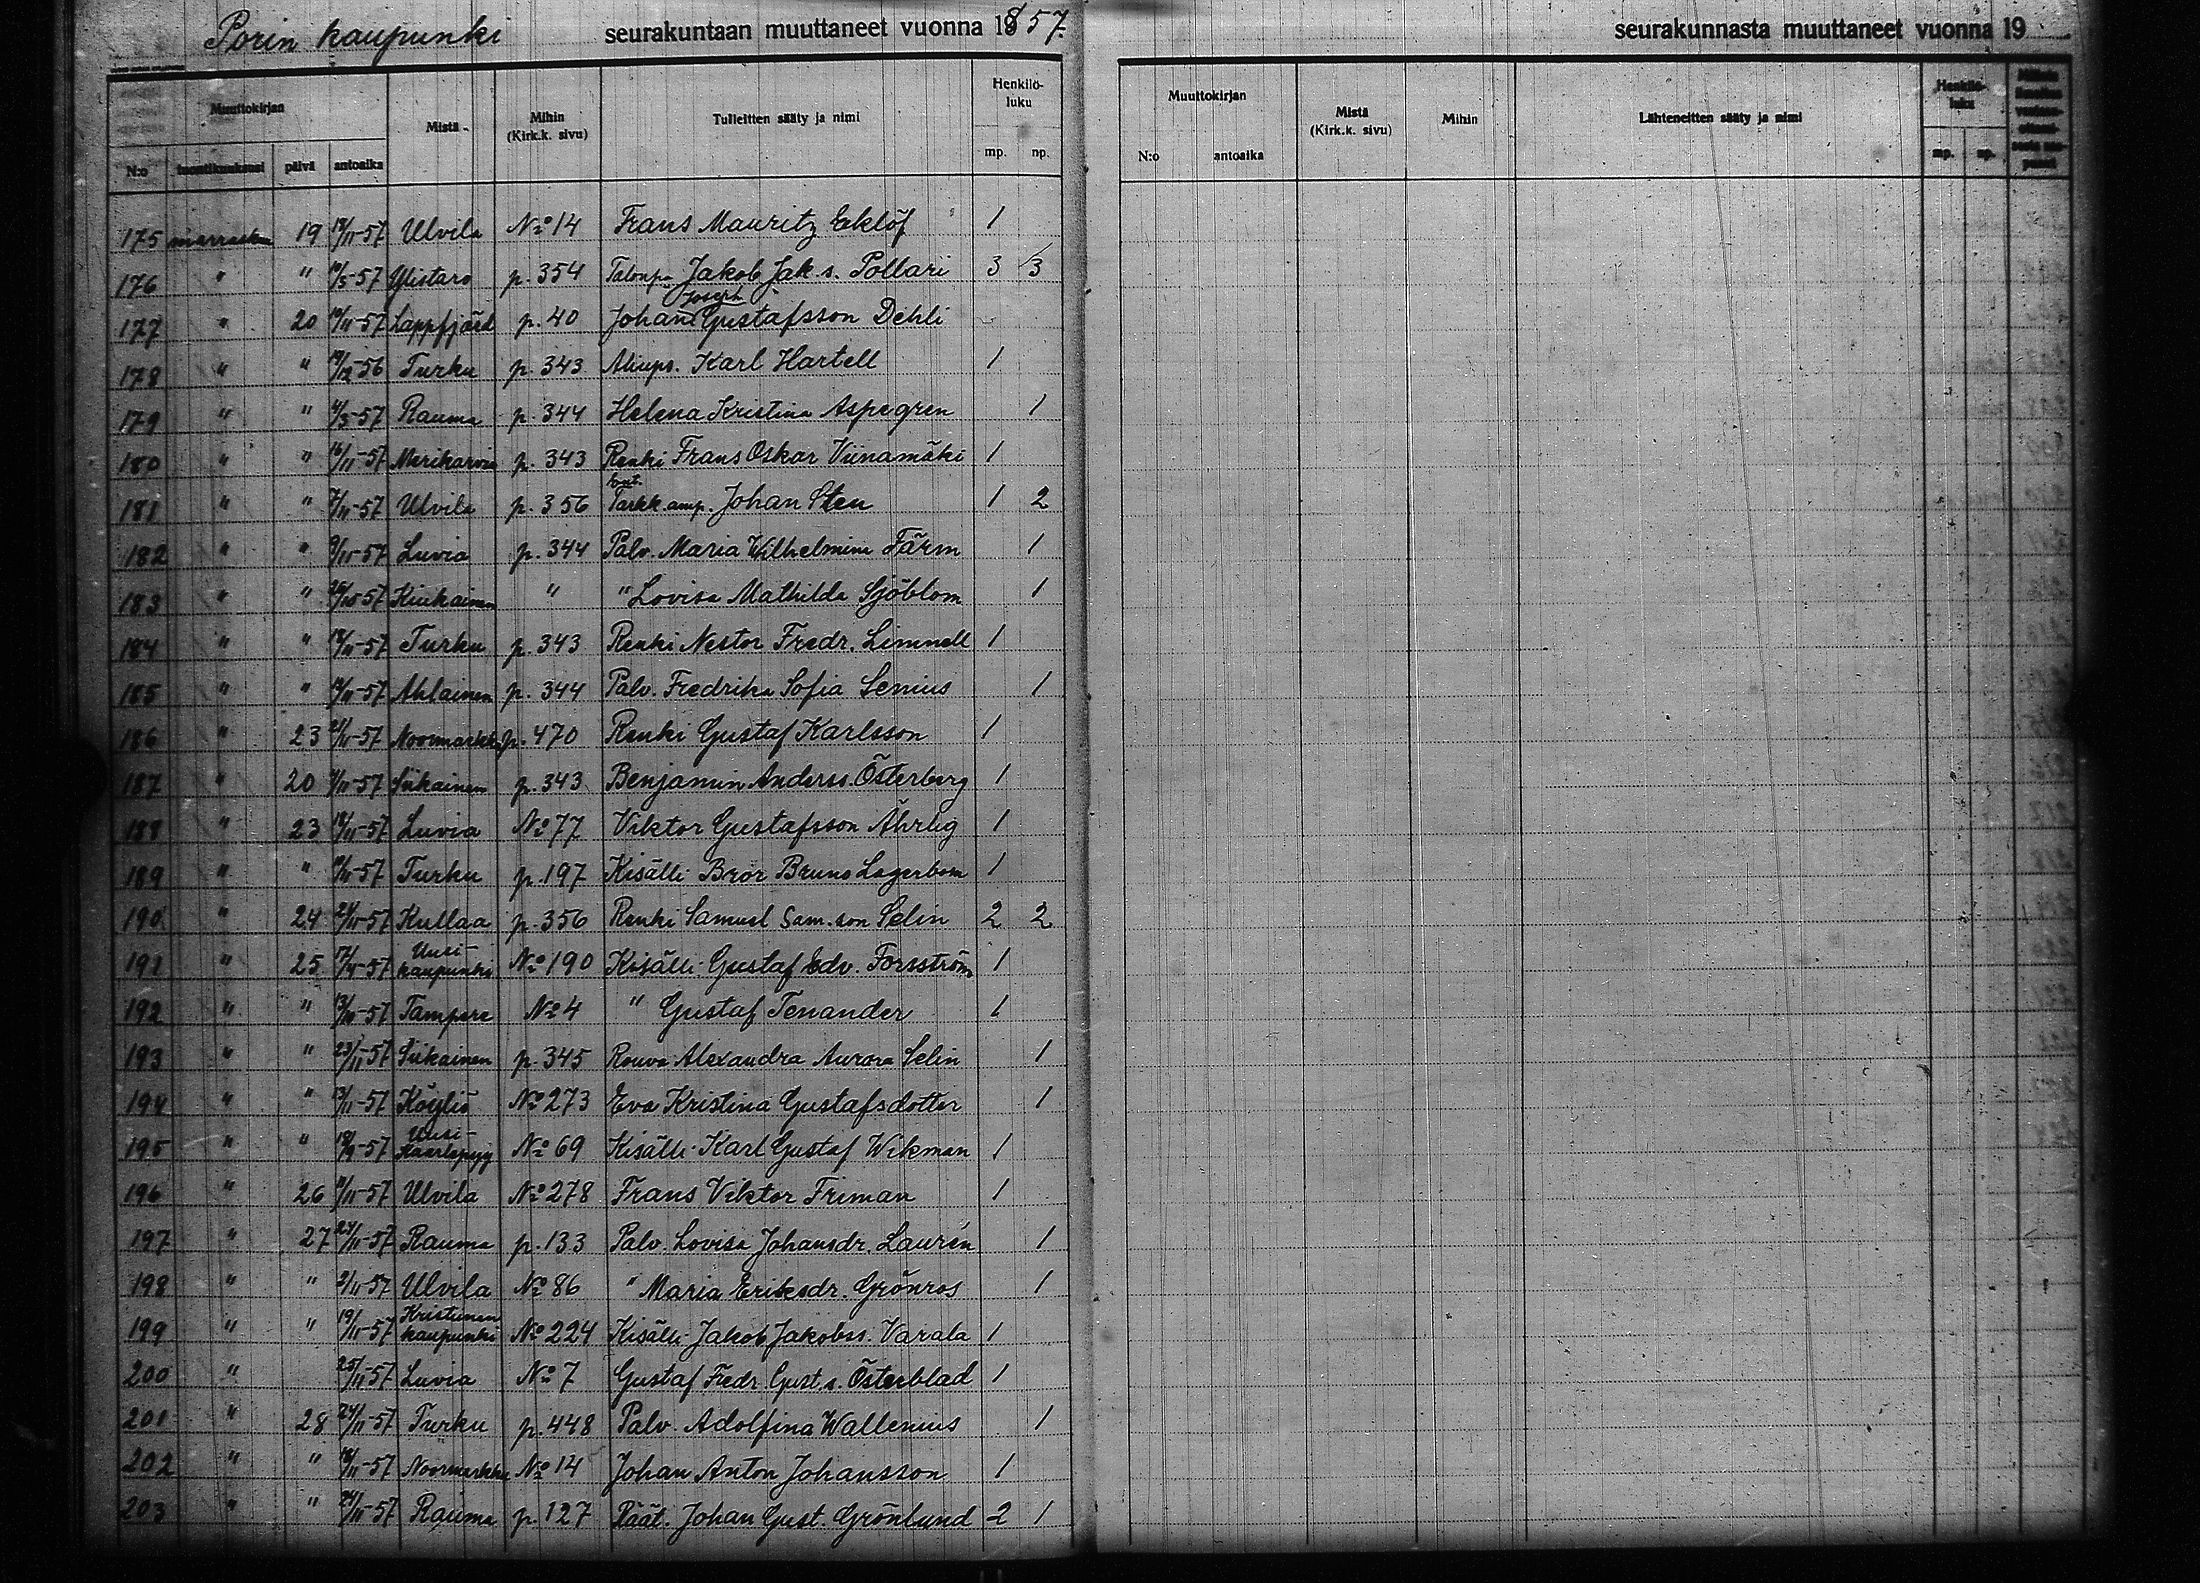 Porin kaupunki seurakuntaan muuttaneet vuonna 1857.
Muuttokirjan Mistä Mihin (Kirk.k. sivu) Tulleitten sääty ja nimi Henkilö-luku
N:o päivä antoaika mp. np.
175 marraskuu 19 19/11-57 Ulvila No 14 Frans Mauritz Eklöf 1
176 " " 10/5-57 Ylistaro p. 354 Talonp. Jakob Jak.s. Pollari 3 3
Joseph
177 " 20 19/11-57 Lappfjärd p. 40 Johan Gustafsson Dehli
178 " " 19/12-56 Turku p. 343 Aliups. Karl Hartell 1
179 " " 4/3-57 Rauma p. 344 Helena Kristina Aspegren 1
180 " " 16/11-57 Merikarvia p. 343 Renki Frans Oskar Viinamäki 1
ent.
181 " " 7/11-57 Ulvila p. 356 Tarkk.amp. Johan Sten 1 2
182 " " 9/11-57 Luvia p. 344 Palv. Maria Wilhelmina Färm 1
183 " " 26/10-57 Kiukainen " " Lovisa Mathilda Sjöblom 1
184 " " Turku p. 343 Renki Nestor Fredr. Limnell 1
185 " " Ahlainen p. 344 Palv. Fredrika Sofia Senius 1
186 " 23 21/11-57 Noormarkku p. 470 Renki Gustaf Karlsson 1
187 " 20 Siikainen p. 343 Benjamin Anderss. Österberg 1
188 " 23 18/11-57 Luvia No 77 Viktor Gustafsson Ährlig 1
189 " " Turku p. 197 Kisälli Bror Bruno Lagerbom 1
190 " 24 24/11-57 Kullaa p. 356 Renki Samuel Sam.son Selin 2 2
191 " 25 Uusi-kaupunki No 190 Kisälli Gustaf Edv. Forsström 1
192 " " 13/10-57 Tampere No 4 " Gustaf Tenander 1
193 " " 23/11-57 Siikainen p. 345 Rouva Alexandra Aurora Selin 1
194 " " 13/11-57 Köyliö No 273 Eva Kristina Gustafsdotter 1
195 " " Uusi-Kaarlepyy No 69 Kisälli Karl Gustaf Wikman 1
196 " 26 Ulvila No 278 Frans Viktor Friman 1
197 " 27 24/11-57 Rauma p. 133 Palv. Lovisa Johansdr. Laurén 1
198 " " 2/11-57 Ulvila No 86 " Maria Eriksdr. Grönros 1
199 " " 19/11-57 Kristiinan kaupunki No 224 Kisälli Jakob Jakobss. Varala 1
200 " 25/11-57 Luvia No 7 Gustaf Fredr. Gust.s. Österblad 1
201 " 28 24/11-57 Turku p. 448 Palv. Adolfina Wallenius 1
202 " " 18/11-57 Noormarkku No 14 Johan Anton Johansson 1
203 " " 24/11-57 Rauma p. 127 Räät. Johan Gust. Grönlund 2 1
seurakunnasta muuttaneet vuonna 19
Muuttokirjan Mistä (Kirk.k. sivu) Mihin Lähteneitten sääty ja nimi Henkilö-luku
N:o antoaika mp. np.